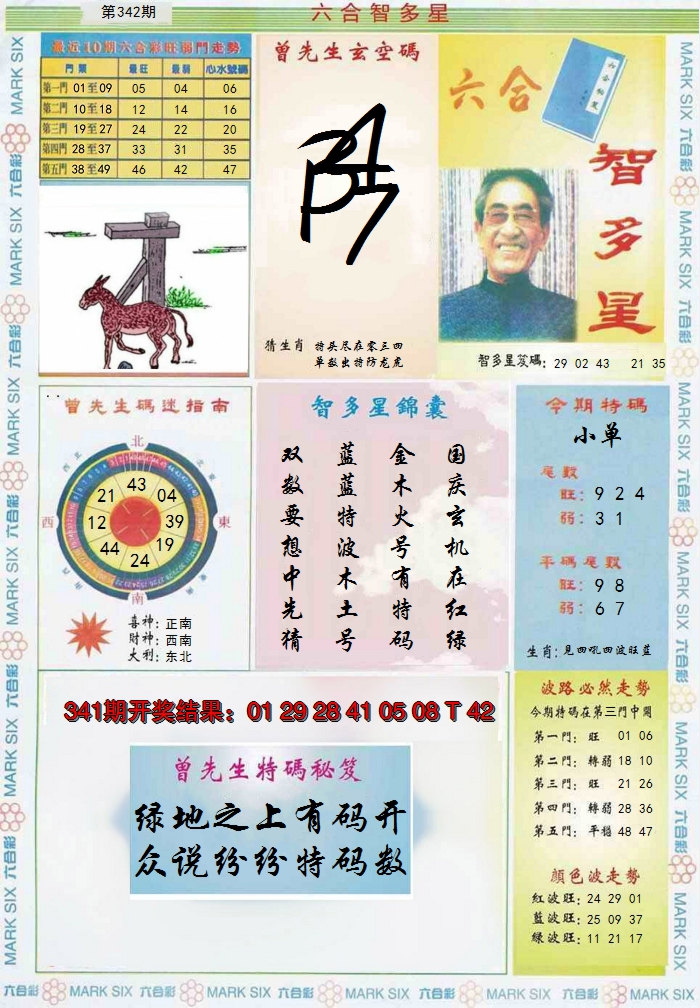 第342期
六合智多星
最近10期六合彩旺弱門走勢
門 類 最旺 最弱 心水號碼
第一門 01至09 05 04 06
第二門 10至18 12 14 16
第三門 19至27 24 22 20
第四門 28至37 33 31 35
第五門 38至49 46 42 47
曾先生玄空碼
猜生肖 特头尽在零三四
单数出特防龙虎
六合
智多星
智多星笈碼: 29 02 43 21 35
曾先生碼迷指南
北
西北
東北
西
東
西南
東南
南
43
04
39
19
24
44
12
21
喜神: 正南
財神: 西南
大利: 东北
智多星錦囊
国庆玄机在红绿
金木火号有特码
蓝蓝特波木土号
双数要想中先猜
今期特碼
小单
尾數
旺: 9 2 4
弱: 3 1
平碼尾數
旺: 9 8
弱: 6 7
生肖: 見四吼四波旺蓝
341期开奖结果: 01 29 28 41 05 08 T 42
曾先生特碼秘笈
绿地之上有码开
众说纷纷特码数
波路必然走勢
今期特碼在第三門中開
第一門: 旺 01 06
第二門: 轉弱 18 10
第三門: 旺 21 26
第四門: 轉弱 28 36
第五門: 平穩 48 47
顏色波走勢
紅波旺: 24 29 01
藍波旺: 25 09 37
綠波旺: 11 21 17
MARK SIX 六合彩